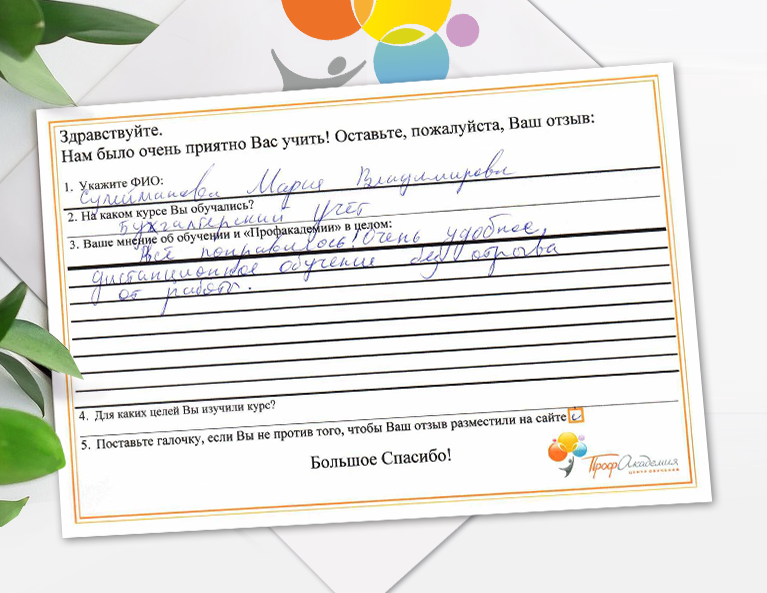 Здравствуйте.
Нам было очень приятно Вас учить! Оставьте, пожалуйста, Ваш отзыв:
1. Укажите ФИО:
Сулейманова Мария Владимировна
2. На каком курсе Вы обучались?
Бухгалтерский учет
3. Ваше мнение об обучении и «Профакадемии» в целом:
Всё понравилось! Очень удобное,
дистанционное обучение без отрыва
от работы.
4. Для каких целей Вы изучили курс?
5. Поставьте галочку, если Вы не против того, чтобы Ваш отзыв разместили на сайте
Большое Спасибо!
ПрофАкадемия
ЦЕНТР ОБУЧЕНИЯ